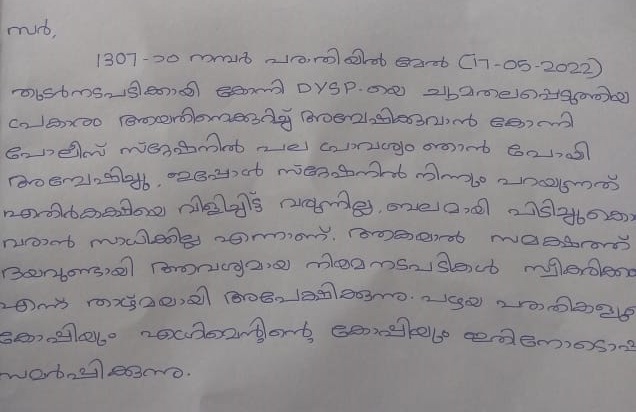 സർ,
1307-ാം നമ്പർ പരാതിയിൽ മേൽ (17-05-2022)
തുടർനടപടിക്കായി കോന്നി DYSP. യെ ചുമതലപ്പെടുത്തിയ
പ്രകാരം ആയതിനെക്കുറിച്ച് അന്വേഷിക്കുവാൻ കോന്നി
പോലീസ് സ്റ്റേഷനിൽ പല പ്രാവശ്യം ഞാൻ പോയി
അന്വേഷിച്ചു. ഇപ്പോൾ സ്റ്റേഷനിൽ നിന്നും പറയുന്നത്
എതിർകക്ഷിയെ വിളിച്ചിട്ട് വരുന്നില്ല. ബലമായി പിടിച്ചുകൊ
വരാൻ സാധിക്കില്ല എന്നാണ്. ആകയാൽ സമക്ഷത്ത്
ദയവുണ്ടായി ആവശ്യമായ നിയമനടപടികൾ സ്വീകരിക്ക
എന്ന് താഴ്മയായി അപേക്ഷിക്കുന്നു. പഴയ പരാതികളുടെ
കോപ്പിയും എഗ്രിമെന്റിന്റെ കോപ്പിയും ഇതിനോടൊപ്പ
സമർപ്പിക്കുന്നു.